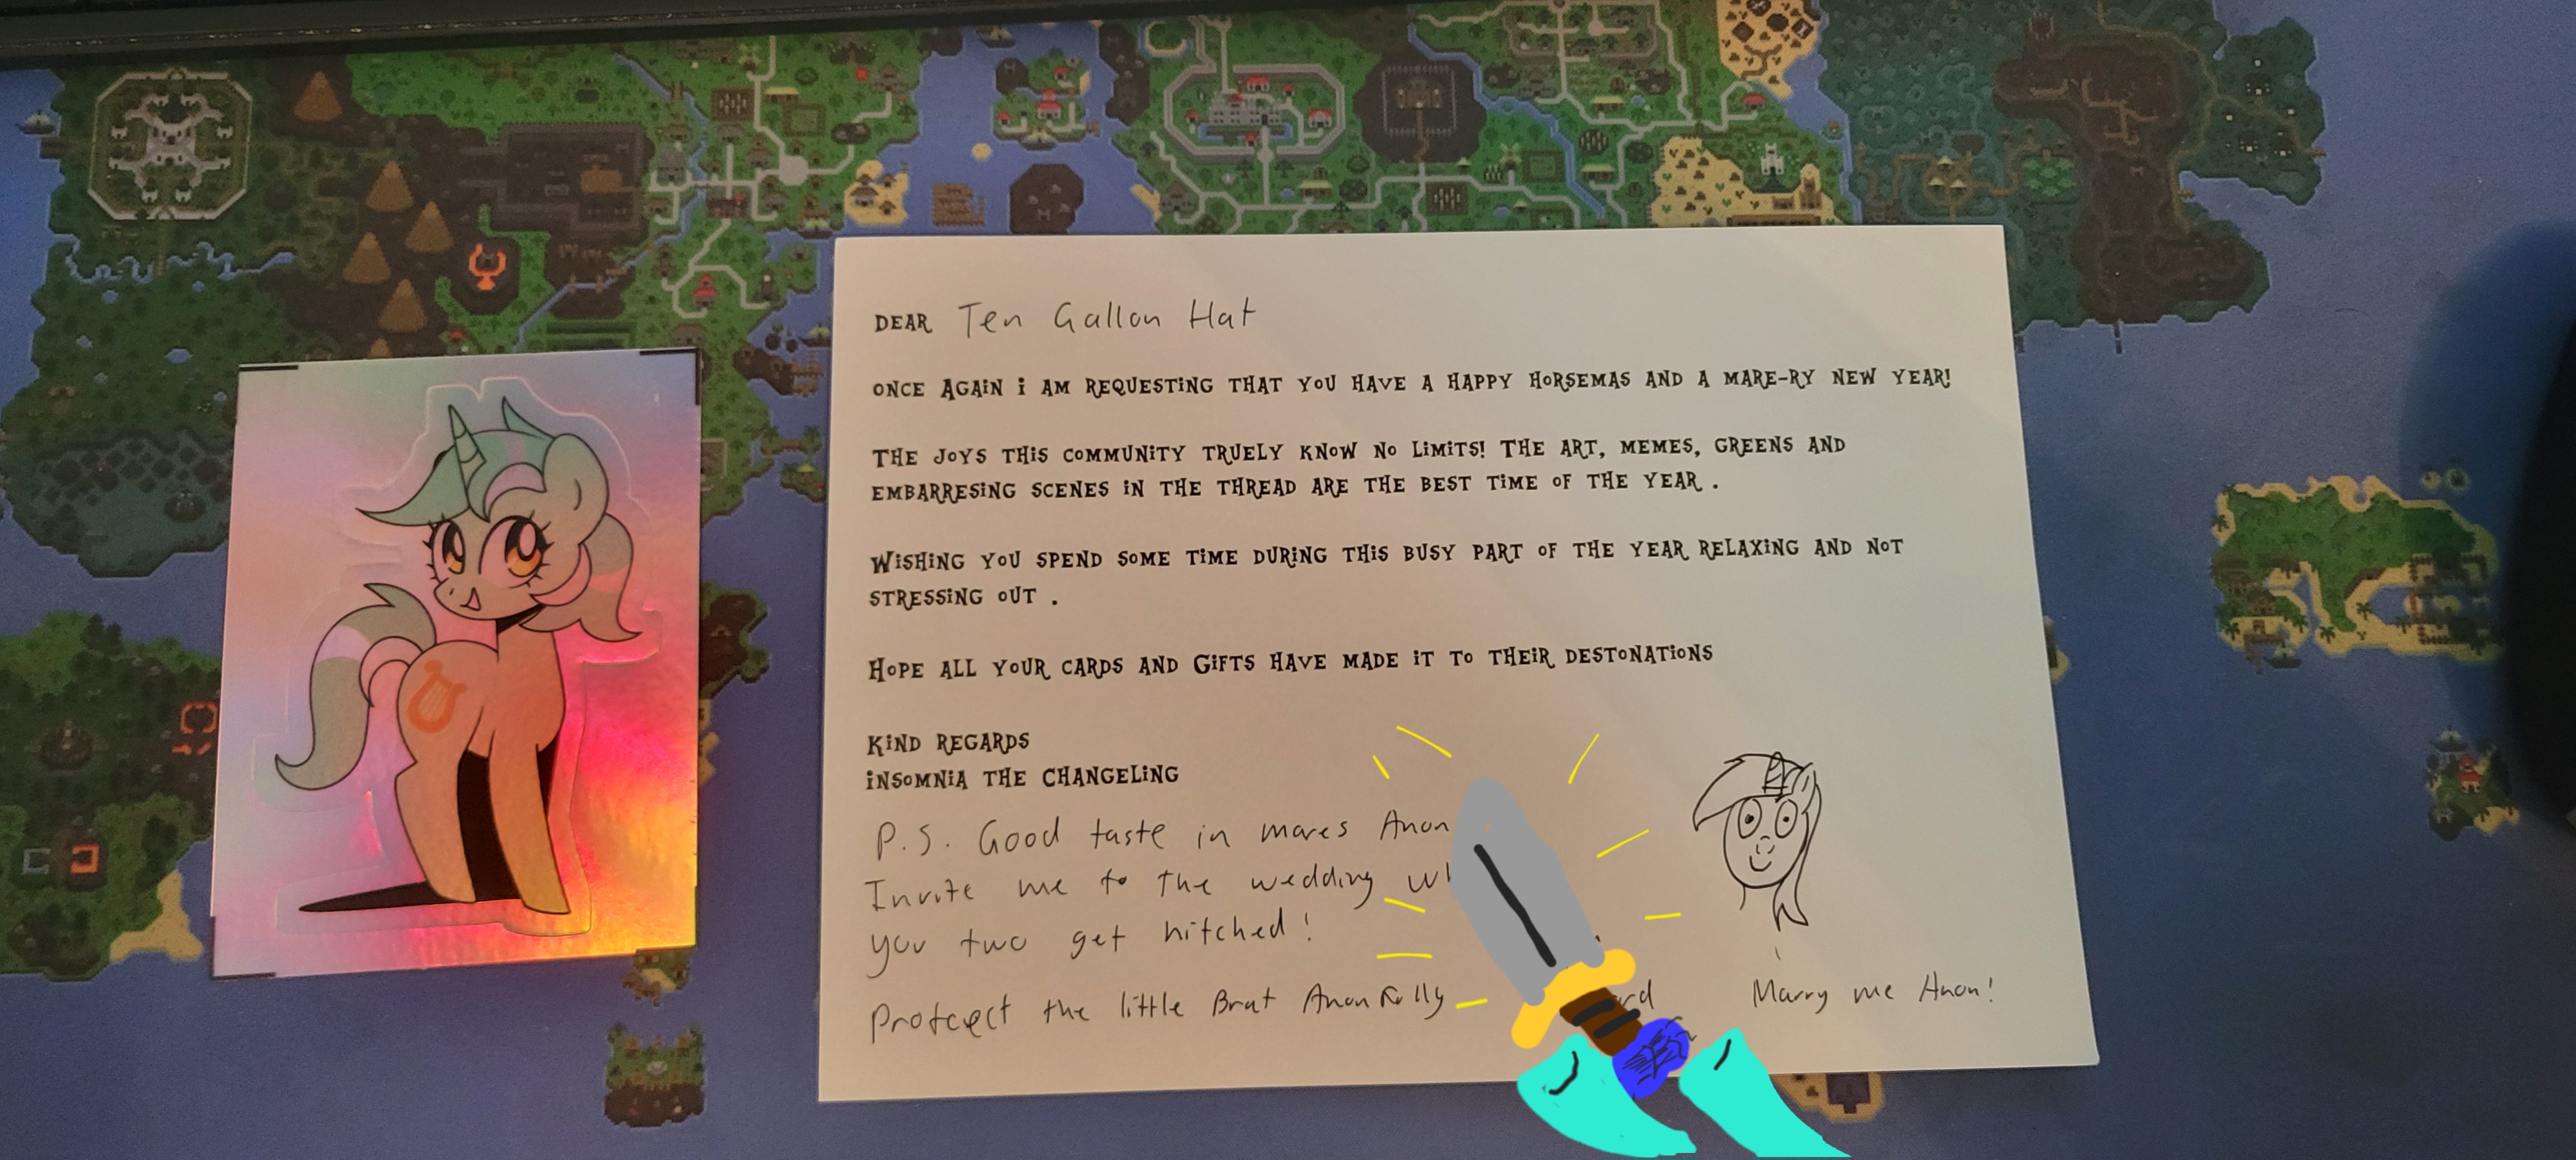 DEAR Ten Gallon Hat
ONCE AGAIN I AM REQUESTING THAT YOU HAVE A HAPPY HORSEMAS AND A MARE-RY NEW YEAR!
THE JOYS THIS COMMUNITY TRUELY KNOW NO LIMITS! THE ART, MEMES, GREENS AND
EMBARRESING SCENES IN THE THREAD ARE THE BEST TIME OF THE YEAR .
WISHING YOU SPEND SOME TIME DURING THIS BUSY PART OF THE YEAR RELAXING AND NOT
STRESSING OUT .
HOPE ALL YOUR CARDS AND GIFTS HAVE MADE IT TO THEIR DESTONATIONS
KIND REGARDS
INSOMNIA THE CHANGELING
P.S. Good taste in mares Anon
Invite me to the wedding
you two get hitched!
Protect the little Brat
Marry me Anon!